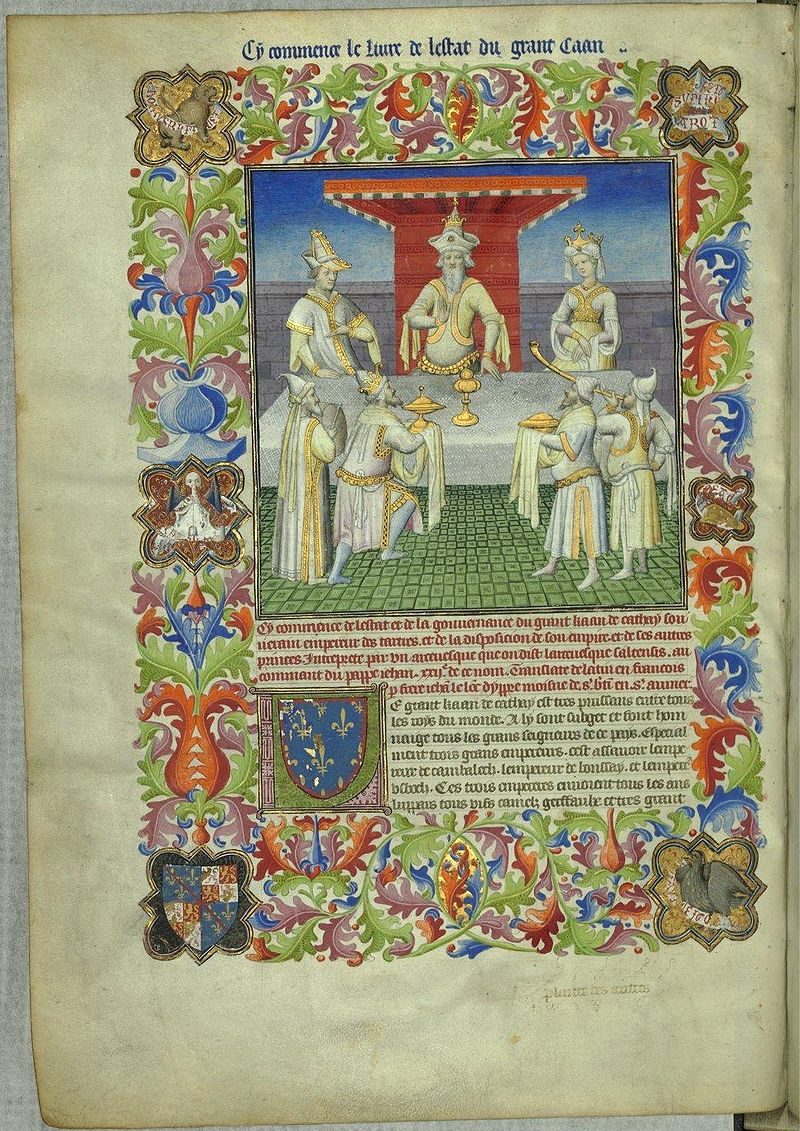 Cy commence le Liure de lestat du grant Caan
Cy commence de lestat et de la gouuernance du grant kaan de cathay sou
uerain empereur des tartres. et de la disposicion de son empire. et de ses autres
princes. Interprete par vn arceuesque que on dist larceuesque saltensis. au
commant du pappe iehan .xxije. de ce nom. Translate de latin en francois
p frere iehan le lonc dyppre moisne de s. bertin en s. aumer.
E grant kaan de cathay est tres puissans entre tous
les roys du monde. A ly sont subget et font hom
mage tous les grans seigneurs de ce pays. Especial
ment trois grans empereurs. cest assauoir lempe
reur de cambalech. lempereur de boussay. et lempere
vsbech. Ces trois empereres enuoient tous les ans
luppars tous vifz camelz gerffaulx et tres grant